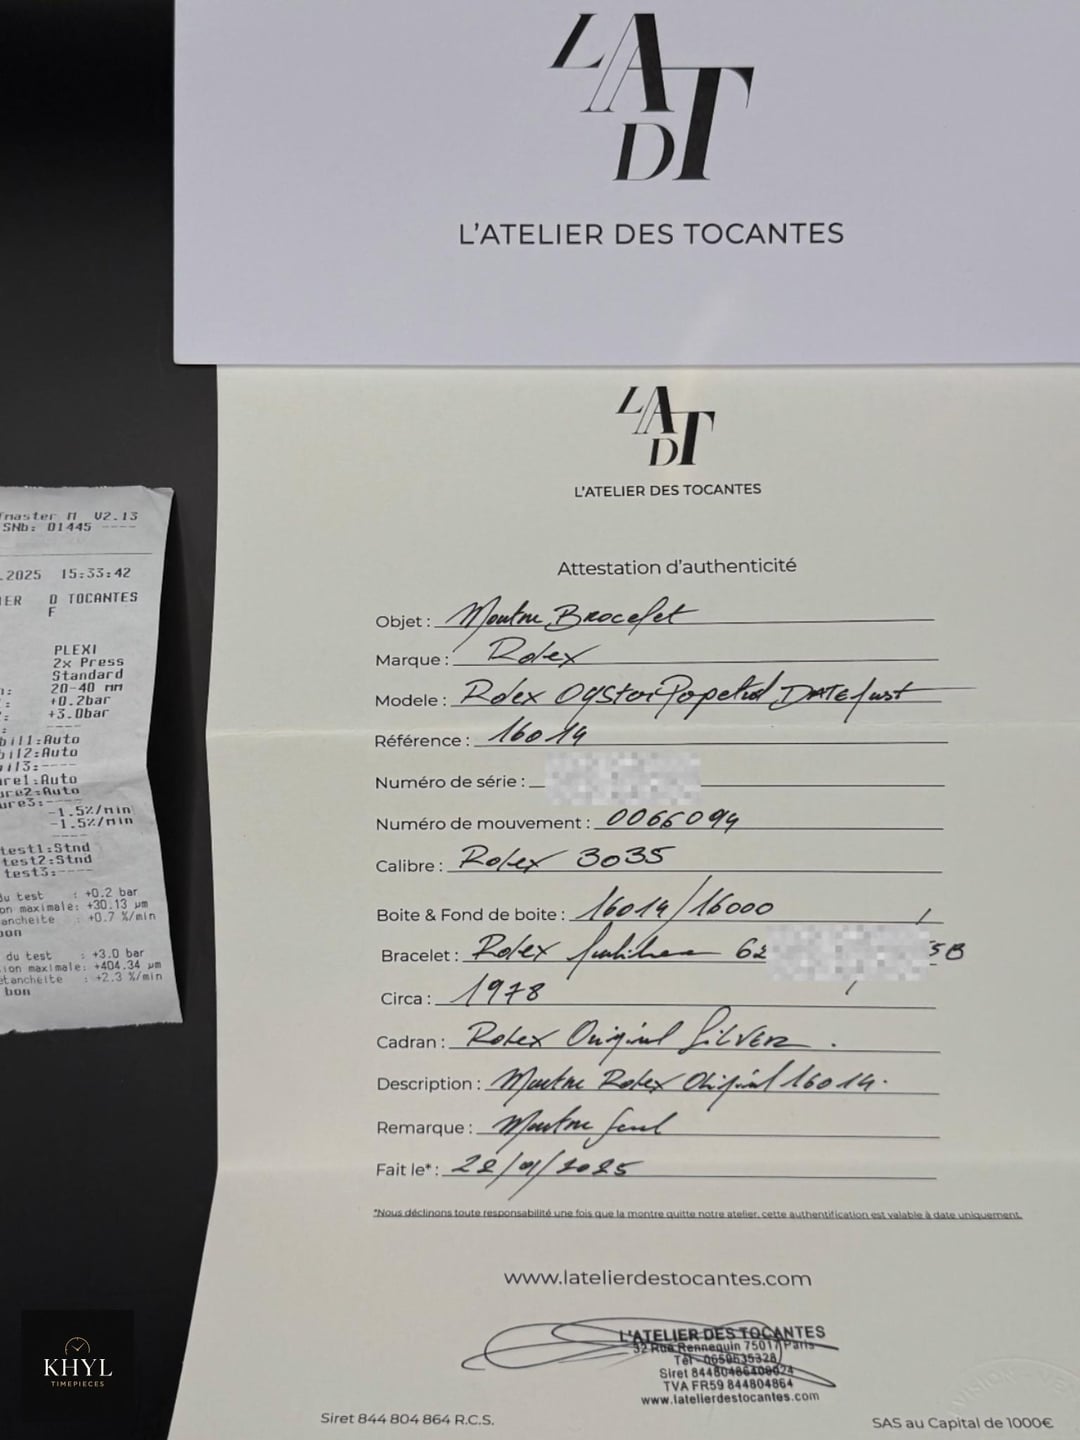 LADT
L'ATELIER DES TOCANTES
LADT
L'ATELIER DES TOCANTES
Attestation d'authenticité
Objet : Montre Bracelet
Marque : Rolex
Modele : Rolex Oyster Perpetual DATEJust
Référence : 16014
Numéro de série :
Numéro de mouvement : 0066094
Calibre : Rolex 3035
Boite & Fond de boite : 16014/16000
Bracelet : Rolex Jubilee 62 5B
Circa : 1978
Cadran : Rolex Original SiLVER.
Description : Montre Rolex Original 16014.
Remarque : Montre Seul
Fait le* : 22/01/2025
*Nous déclinons toute responsabilité une fois que la montre quitte notre atelier, cette authentification est valable à date uniquement.
www.latelierdestocantes.com
L'ATELIER DES TOCANTES
32 Rue Rennequin 75017 Paris
Tél
Siret
TVA FR59 844804864
www.latelierdestocantes.com
Siret 844 804 864 R.C.S.
SAS au Capital de 1000€
master M V2.13
SNb: 01445 ----
.2025 15:33:42
ER D TOCANTES
F
PLEXI
2x Press
Standard
20-40 mm
+0.2bar
+3.0bar
----
bil1:Auto
bil2:Auto
bil3:----
ure1:Auto
ure2:Auto
ure3:----
-1.5%/min
-1.5%/min
----
test1:Stnd
test2:Stnd
test3:----
du test : +0.2 bar
on maximale: +30.13 µm
tancheite : +0.7 %/min
bon
du test : +3.0 bar
ion maximale: +404.34 µm
etancheite : +2.3 %/min
bon
KHYL
TIMEPIECES